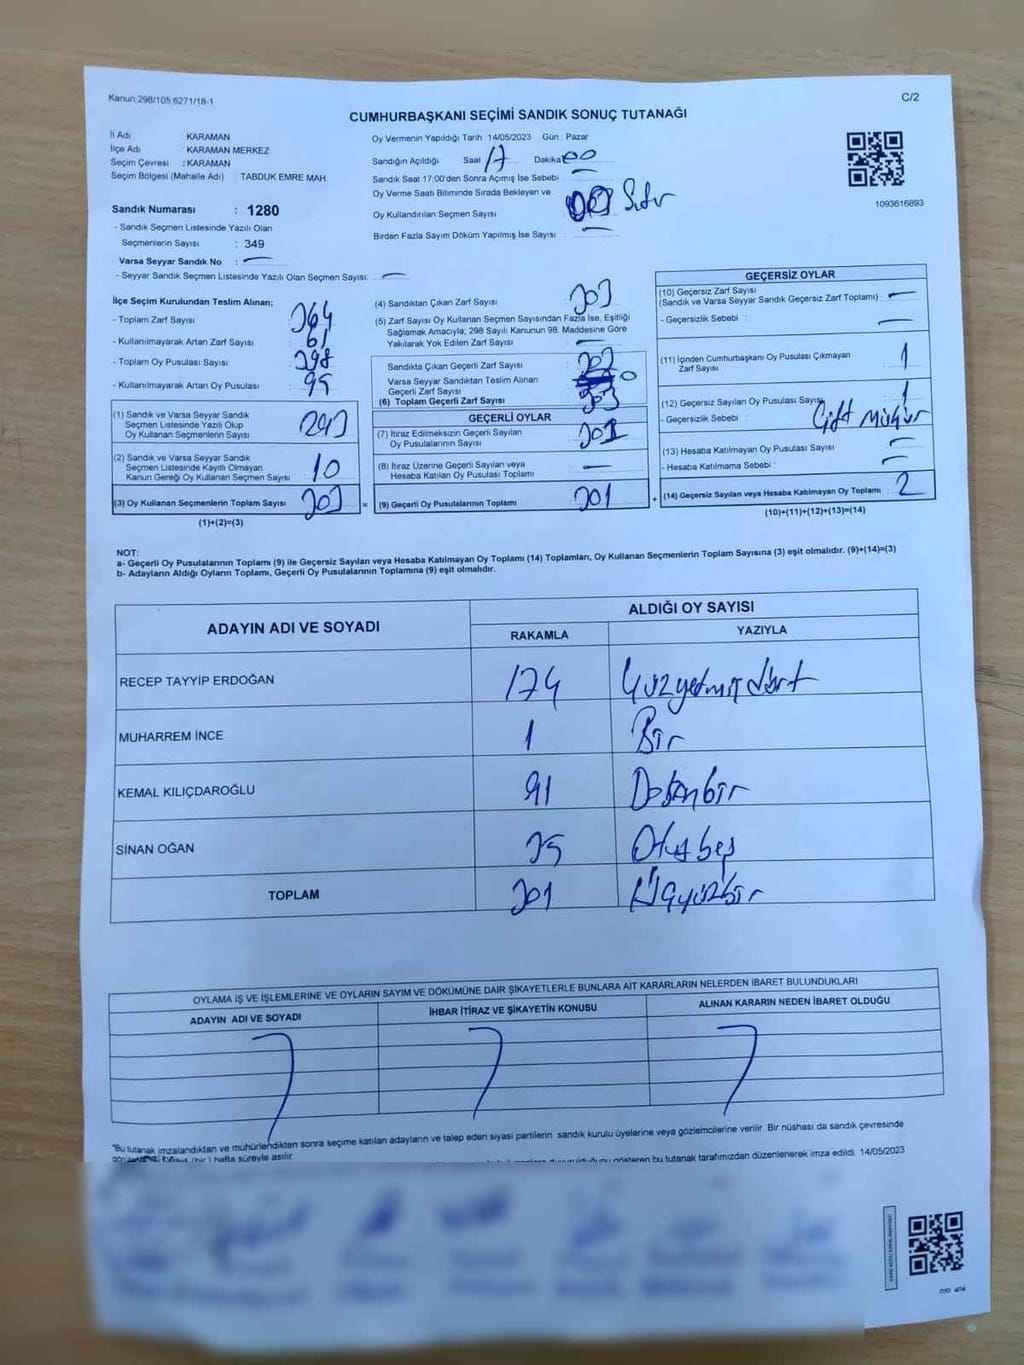 Kanun:298/105,6271/18-1
C/2
CUMHURBAŞKANI SEÇİMİ SANDIK SONUÇ TUTANAĞI
İl Adı KARAMAN
İlçe Adı KARAMAN MERKEZ
Seçim Çevresi : KARAMAN
Seçim Bölgesi (Mahalle Adı) : TABDUK EMRE MAH.
Oy Vermenin Yapıldığı Tarih :14/05/2023 Gün : Pazar
Sandığın Açıldığı Saat 17 Dakika 00
Sandık Saat 17:00'den Sonra Açımış İse Sebebi
Oy Verme Saati Bitiminde Sırada Bekleyen ve
Oy Kullandırılan Seçmen Sayısı Sıfır
Birden Fazla Sayım Döküm Yapılmış İse Sayısı :
1093616893
Sandık Numarası : 1280
- Sandık Seçmen Listesinde Yazılı Olan
Seçmenlerin Sayısı : 349
Varsa Seyyar Sandık No :
- Seyyar Sandık Seçmen Listesinde Yazılı Olan Seçmen Sayısı:
İlçe Seçim Kurulundan Teslim Alınan;
- Toplam Zarf Sayısı 364
- Kullanılmayarak Artan Zarf Sayısı : 61
- Toplam Oy Pusulası Sayısı 398
- Kullanılmayarak Artan Oy Pusulası : 95
(1) Sandık ve Varsa Seyyar Sandık
Seçmen Listesinde Yazılı Olup
Oy Kullanan Seçmenlerin Sayısı 293
(2) Sandık ve Varsa Seyyar Sandık
Seçmen Listesinde Kayıtlı Olmayan
Kanun Gereği Oy Kullanan Seçmen Sayısı 10
(3) Oy Kullanan Seçmenlerin Toplam Sayısı 303 =
(1)+(2)=(3)
(4) Sandıktan Çıkan Zarf Sayısı 303
(5) Zarf Sayısı Oy Kullanan Seçmen Sayısından Fazla İse, Eşitliği
Sağlamak Amacıyla; 298 Sayılı Kanunun 98. Maddesine Göre
Yakılarak Yok Edilen Zarf Sayısı :
Sandıkta Çıkan Geçerli Zarf Sayısı 303
Varsa Seyyar Sandıktan Teslim Alınan
Geçerli Zarf Sayısı 0
(6) Toplam Geçerli Zarf Sayısı 303
GEÇERLİ OYLAR
(7) İtiraz Edilmeksizin Geçerli Sayılan
Oy Pusulalarının Sayısı 301
(8) İtiraz Üzerine Geçerli Sayılan veya
Hesaba Katılan Oy Pusulası Toplamı
(9) Geçerli Oy Pusulalarının Toplamı 301 +
GEÇERSİZ OYLAR
(10) Geçersiz Zarf Sayısı
(Sandık ve Varsa Seyyar Sandık Geçersiz Zarf Toplamı) :
- Geçersizlik Sebebi :
(11) İçinden Cumhurbaşkanı Oy Pusulası Çıkmayan
Zarf Sayısı 1
(12) Geçersiz Sayılan Oy Pusulası Sayısı 1
- Geçersizlik Sebebi : Çift Mühür
(13) Hesaba Katılmayan Oy Pusulası Sayısı
- Hesaba Katılmama Sebebi :
(14) Geçersiz Sayılan veya Hesaba Katılmayan Oy Toplamı 2
(10)+(11)+(12)+(13)=(14)
NOT:
a- Geçerli Oy Pusulalarının Toplamı (9) ile Geçersiz Sayılan veya Hesaba Katılmayan Oy Toplamı (14) Toplamları, Oy Kullanan Seçmenlerin Toplam Sayısına (3) eşit olmalıdır. (9)+(14)=(3)
b- Adayların Aldığı Oyların Toplamı, Geçerli Oy Pusulalarının Toplamına (9) eşit olmalıdır.
ADAYIN ADI VE SOYADI ALDIĞI OY SAYISI
RAKAMLA YAZIYLA
RECEP TAYYİP ERDOĞAN 174 Yüzyetmişdört
MUHARREM İNCE 1 Bir
KEMAL KILIÇDAROĞLU 91 Doksanbir
SİNAN OĞAN 35 Otuzbeş
TOPLAM 301 Üçyüzbir
OYLAMA İŞ VE İŞLEMLERİNE VE OYLARIN SAYIM VE DÖKÜMÜNE DAİR ŞİKAYETLERLE BUNLARA AİT KARARLARIN NELERDEN İBARET BULUNDUKLARI
ADAYIN ADI VE SOYADI İHBAR İTİRAZ VE ŞİKAYETİN KONUSU ALINAN KARARIN NEDEN İBARET OLDUĞU
"Bu tutanak imzalandıktan ve mühürlendikten sonra seçime katılan adayların ve talep eden siyasi partilerin sandık kurulu üyelerine veya gözlemcilerine verilir. Bir nüshası da sandık çevresinde
hafta süreyle asılır.
gösteren bu tutanak tarafımızdan düzenlenerek imza edildi. 14/05/2023